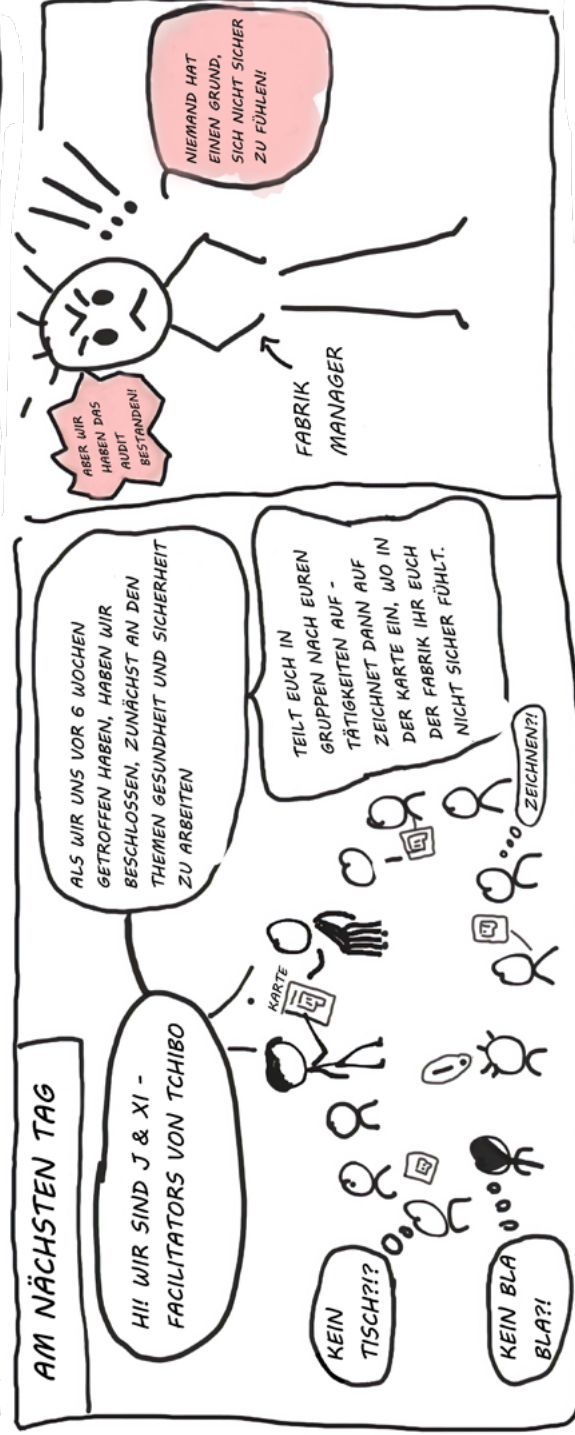 AM NÄCHSTEN TAG
HI! WIR SIND J & XI -
FACILITATORS VON TCHIBO
ALS WIR UNS VOR 6 WOCHEN
GETROFFEN HABEN, HABEN WIR
BESCHLOSSEN, ZUNÄCHST AN DEN
THEMEN GESUNDHEIT UND SICHERHEIT
ZU ARBEITEN
TEILT EUCH IN
GRUPPEN NACH EUREN
TÄTIGKEITEN AUF -
ZEICHNET DANN AUF
DER KARTE EIN, WO IN
DER FABRIK IHR EUCH
NICHT SICHER FÜHLT.
KARTE
KEIN
TISCH?!?
KEIN BLA
BLA?!
ZEICHNEN?!
ABER WIR
HABEN DAS
AUDIT
BESTANDEN!
!!!
NIEMAND HAT
EINEN GRUND,
SICH NICHT SICHER
ZU FÜHLEN!
FABRIK
MANAGER